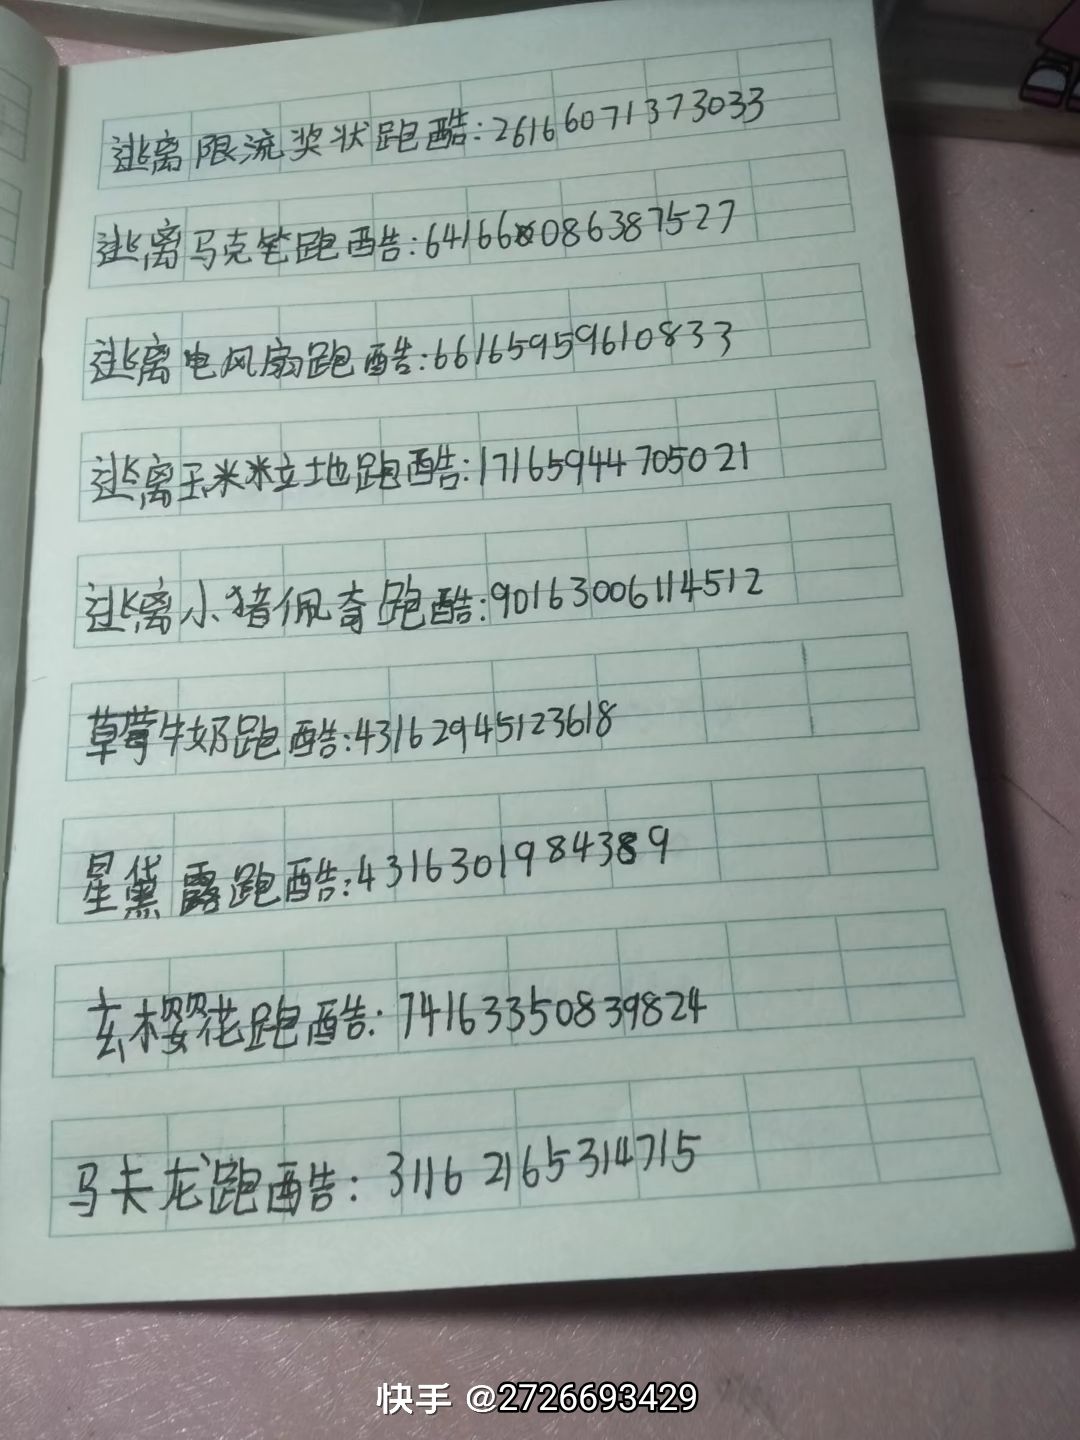 逃离限流奖状跑酷:26166071373033
逃离马克笔跑酷:64166086387527
逃离电风扇跑酷:66165959610833
逃离玉米粒地跑酷:17165944705021
逃离小猪佩奇跑酷:90163006114512
草莓牛奶跑酷:43162945123618
星黛露跑酷:4316301984389
玄樱花跑酷:74163350839824
马卡龙跑酷:31162165314715
快手 @2726693429